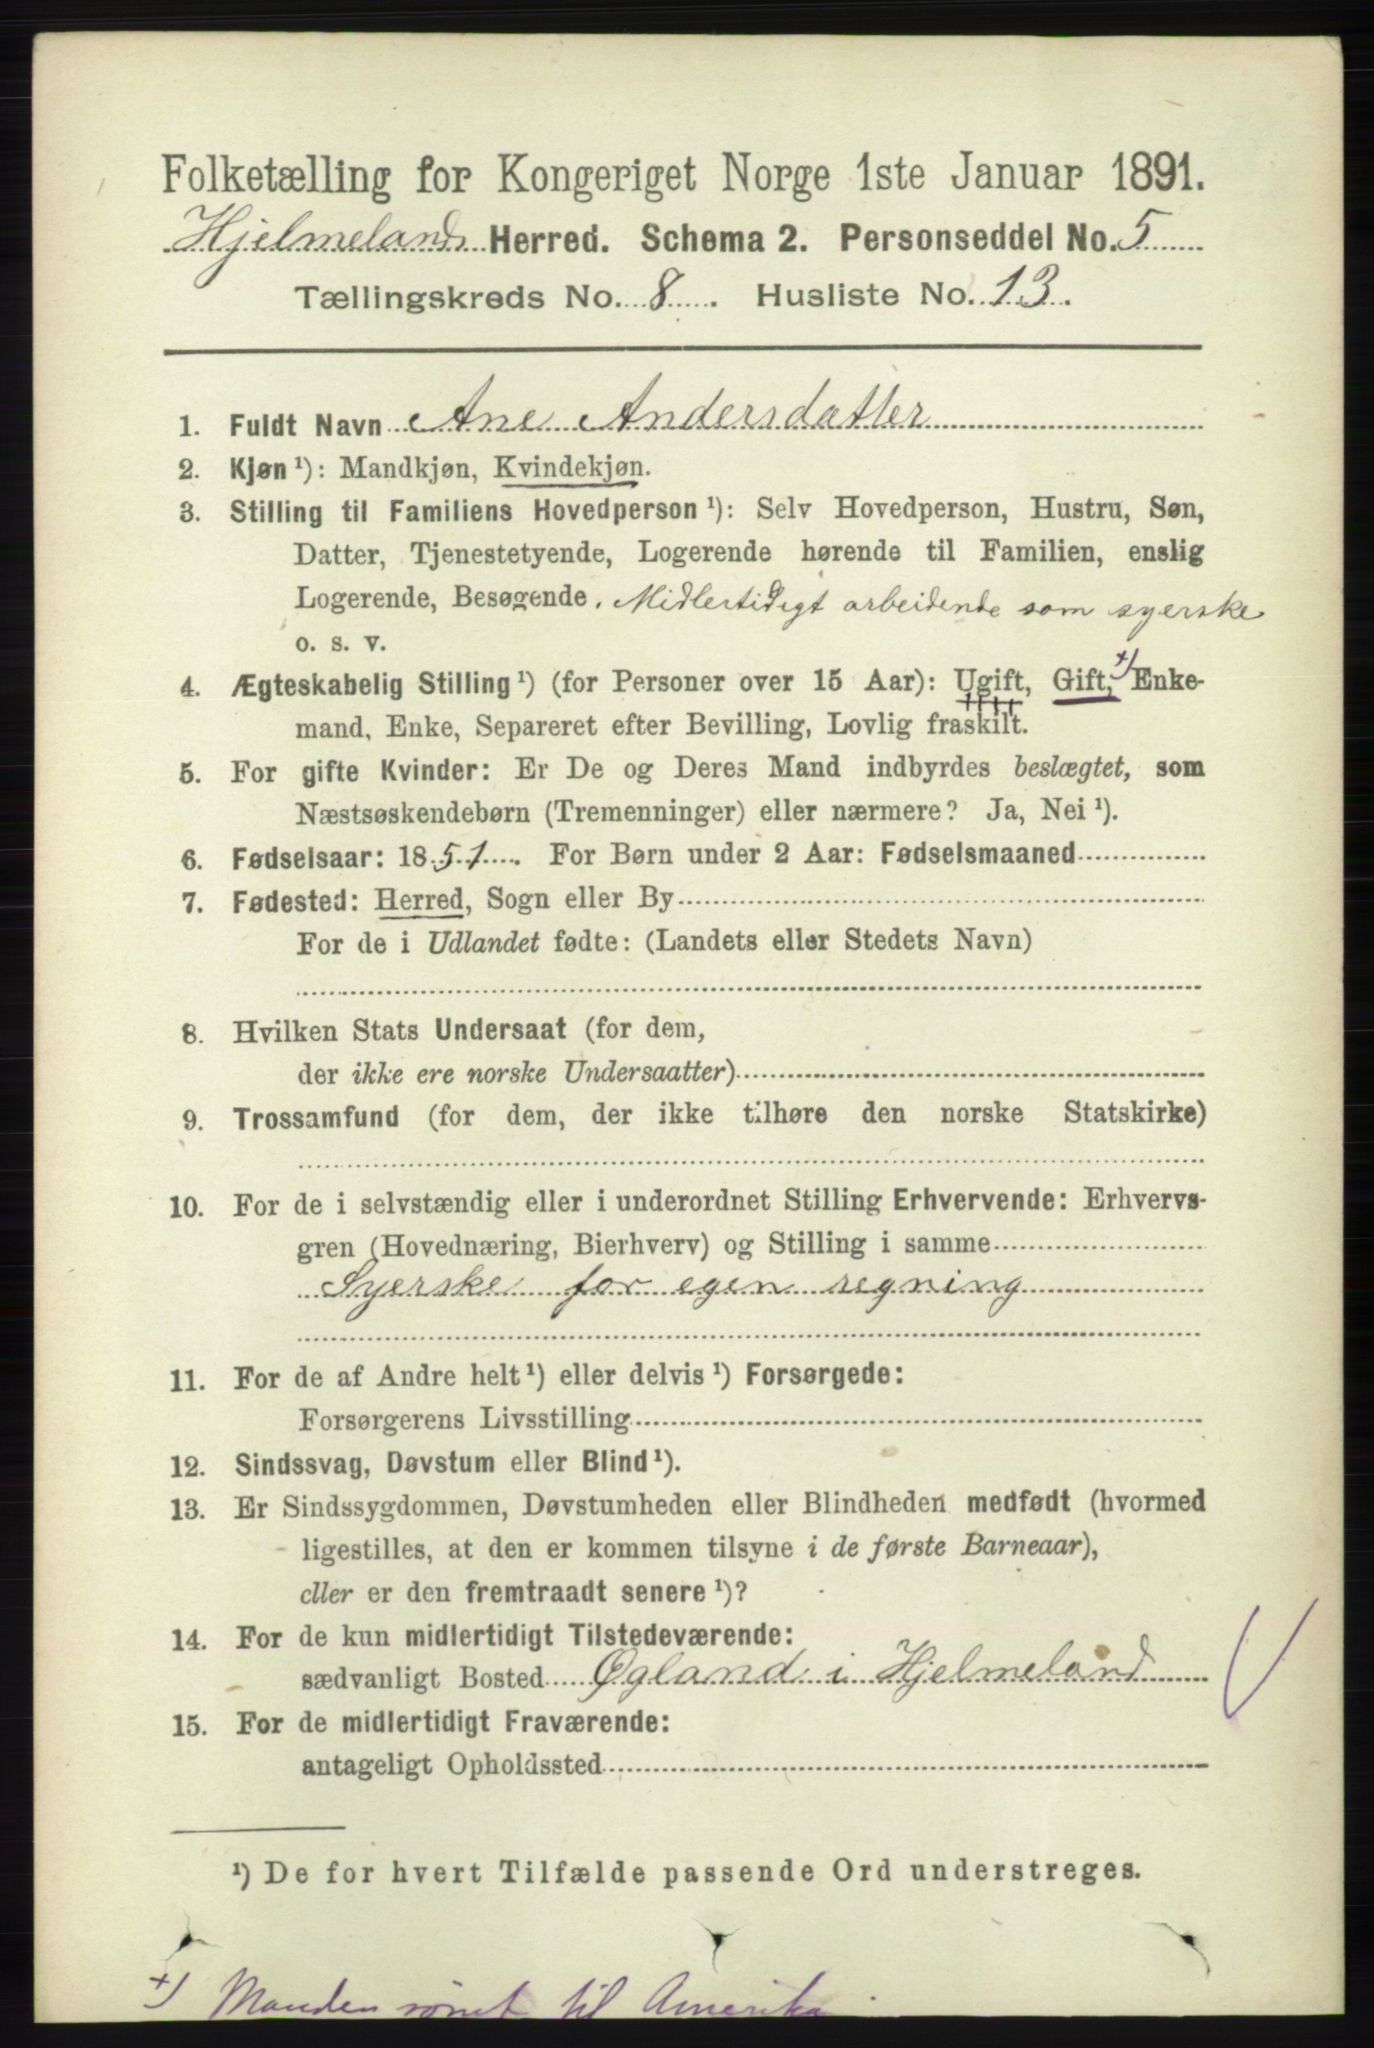 Folketælling for Kongeriget Norge 1ste Januar 1891.
Hjelmeland Herred. Schema 2. Personseddel No. 5
Tællingskreds No. 8. Husliste No. 13.
1. Fuldt Navn Ane Andersdatter
2. Kjøn ¹): Mandkjøn, Kvindekjøn.
3. Stilling til Familiens Hovedperson ¹): Selv Hovedperson, Hustru, Søn,
Datter, Tjenestetyende, Logerende hørende til Familien, enslig
Logerende, Besøgende. Midlertidigt arbeidende som syerske
o. s. v.
4. Ægteskabelig Stilling ¹) (for Personer over 15 Aar): Ugift, Gift, +) Enke-
mand, Enke, Separeret efter Bevilling, Lovlig fraskilt.
5. For gifte Kvinder: Er De og Deres Mand indbyrdes beslægtet, som
Næstsøskendebørn (Tremenninger) eller nærmere? Ja, Nei ¹).
6. Fødselsaar: 1851. For Børn under 2 Aar: Fødselsmaaned
7. Fødested: Herred, Sogn eller By
For de i Udlandet fødte: (Landets eller Stedets Navn)
8. Hvilken Stats Undersaat (for dem,
der ikke ere norske Undersaatter)
9. Trossamfund (for dem, der ikke tilhøre den norske Statskirke)
10. For de i selvstændig eller i underordnet Stilling Erhvervende: Erhvervs-
gren (Hovednæring, Bierhverv) og Stilling i samme
Syerske for egen regning
11. For de af Andre helt ¹) eller delvis ¹) Forsørgede:
Forsørgerens Livsstilling
12. Sindssvag, Døvstum eller Blind ¹).
13. Er Sindssygdommen, Døvstumheden eller Blindheden medfødt (hvormed
ligestilles, at den er kommen tilsyne i de første Barneaar),
eller er den fremtraadt senere ¹)?
14. For de kun midlertidigt Tilstedeværende:
sædvanligt Bosted Øgland i Hjelmeland
15. For de midlertidigt Fraværende:
antageligt Opholdssted
¹) De for hvert Tilfælde passende Ord understreges.
+) Manden rømt til Amerika